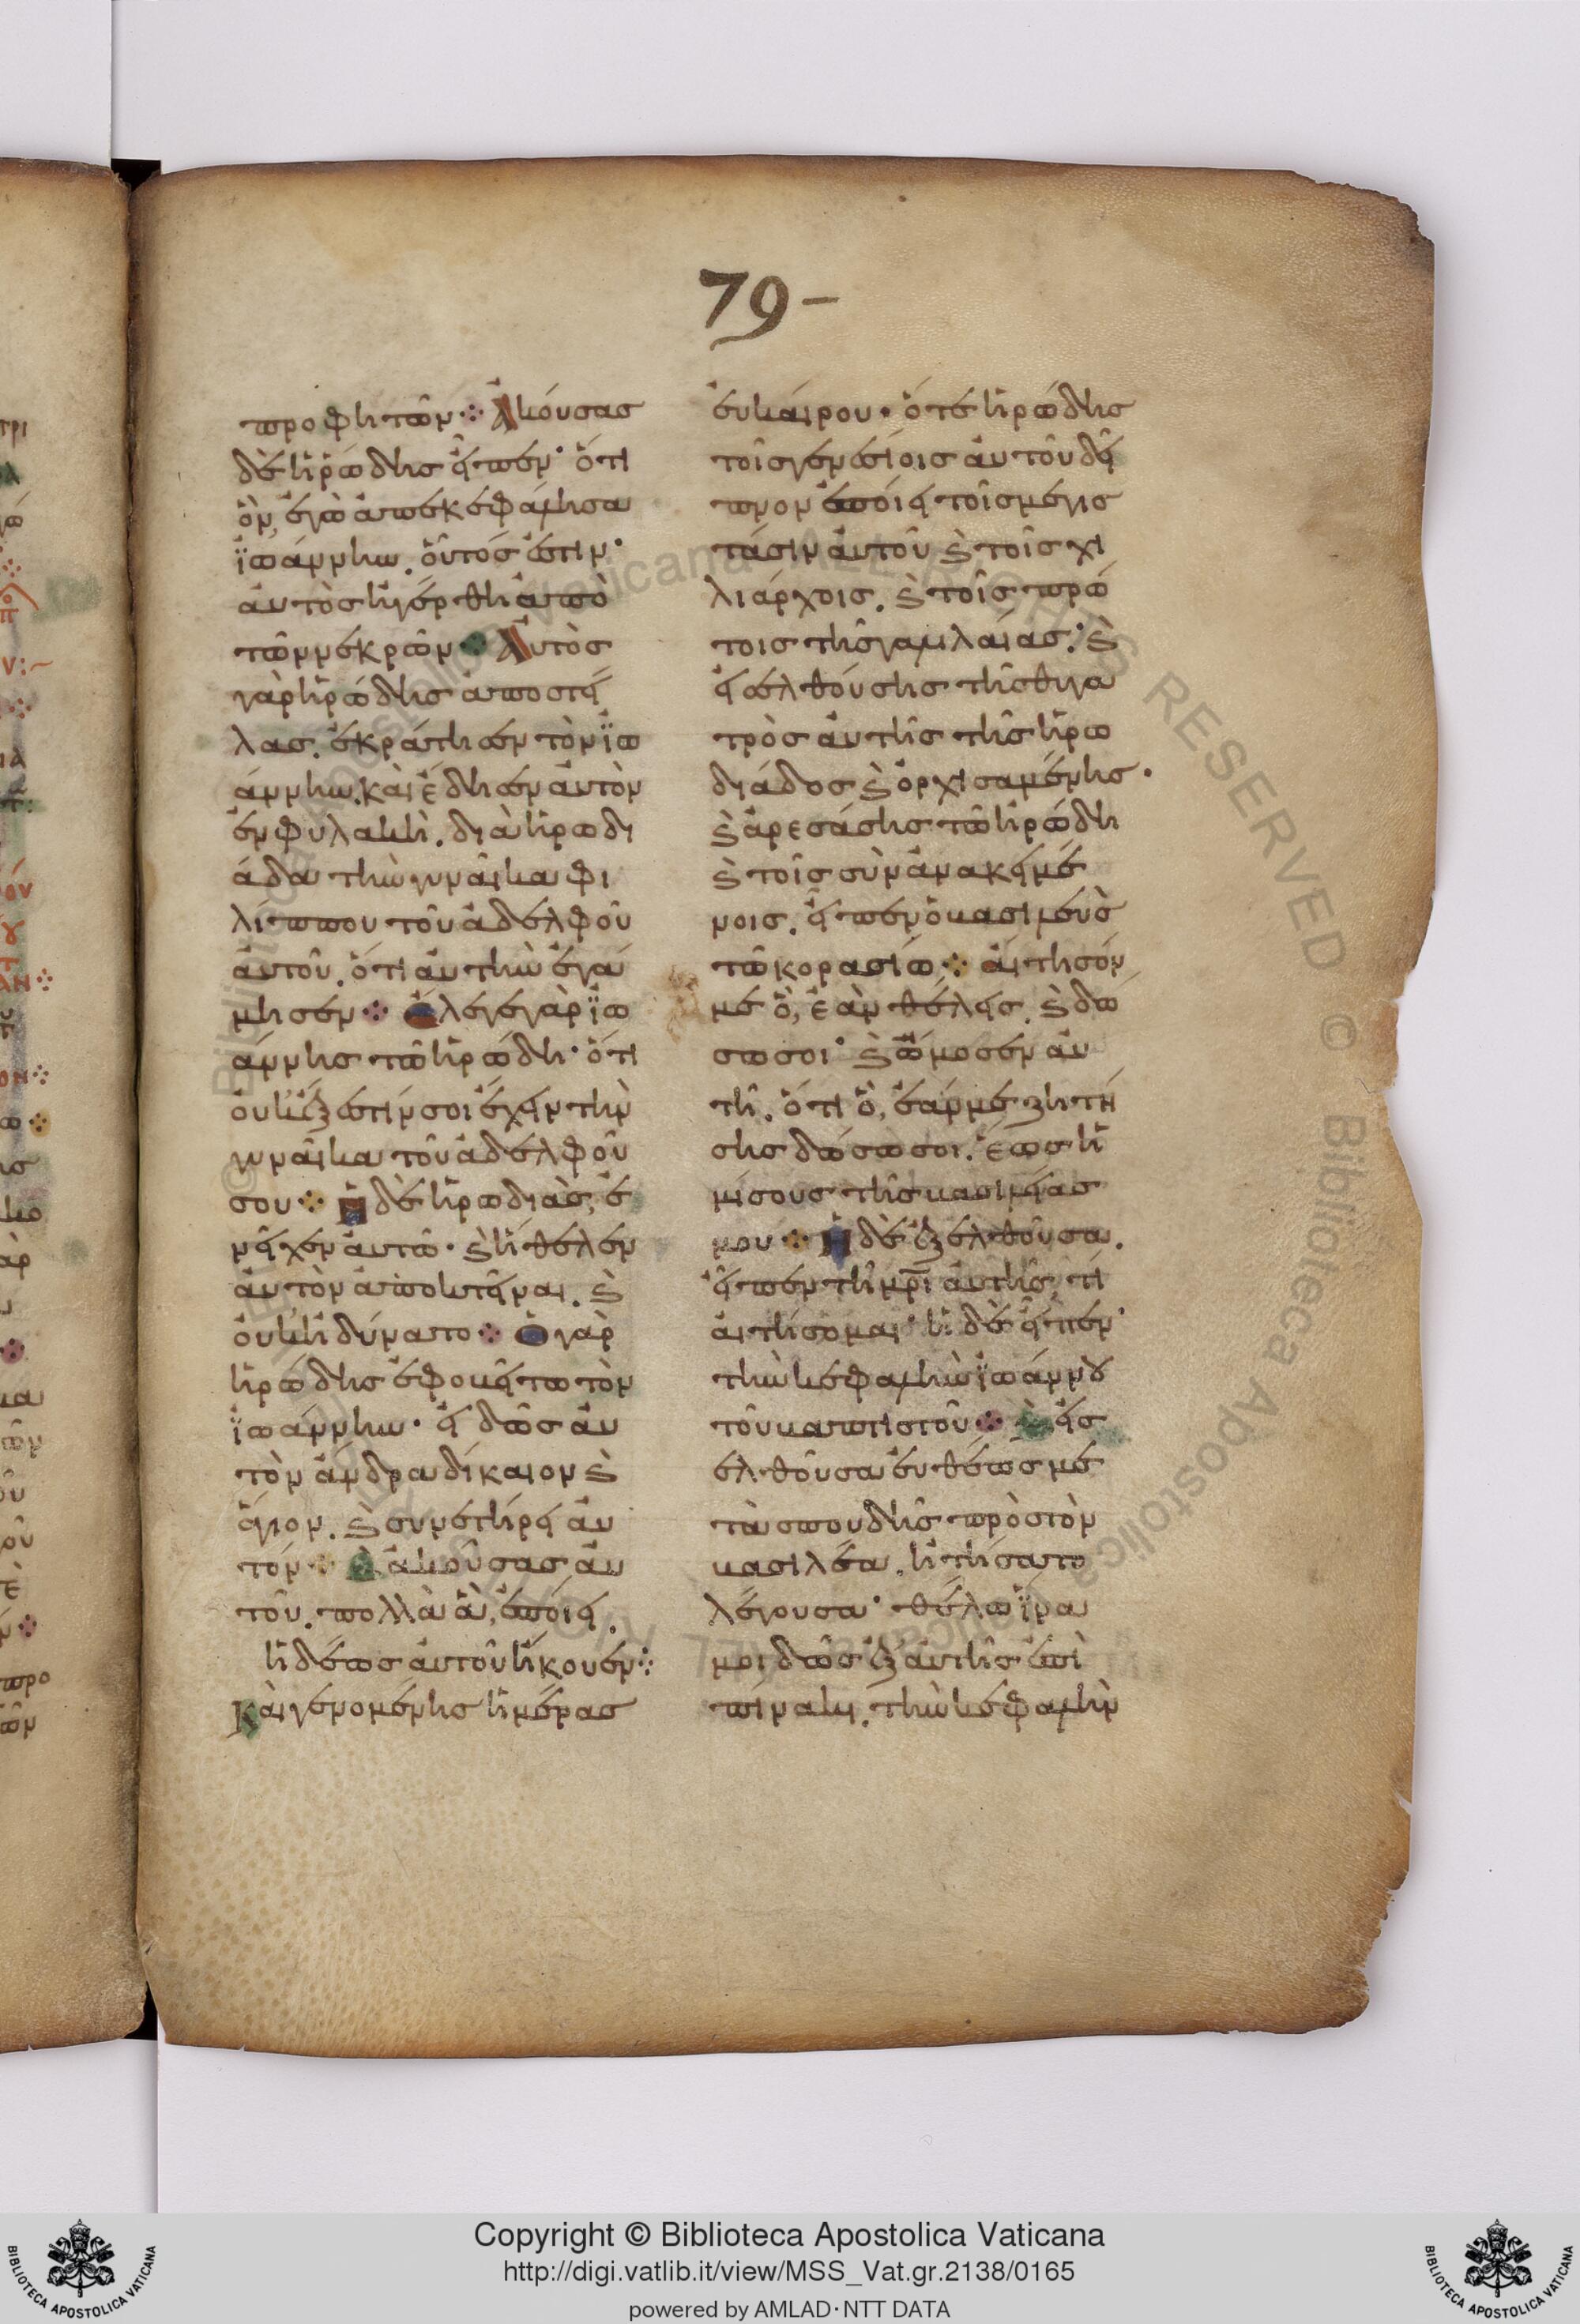 79-
προφητῶν ⁘ Ἀκούσας
δὲ ἡρώδης εἶπεν· ὅτι
ὃν ἐγὼ ἀπεκεφάλησα
ἰωάννην. οὗτός ἐστιν·
αὐτὸς ἠγέρθη ἀπὸ
τῶν νεκρῶν ⁘ Αὐτὸς
γὰρ ἡρώδης ἀποστεί
λας. ἐκράτησεν τὸν ἰω
άννην. καὶ ἔδησεν αὐτὸν
ἐν φυλακῆ. διὰ ἡρωδι
άδα τὴν γυναῖκα φι
λίππου τοῦ ἀδελφοῦ
αὐτοῦ. ὅτι αὐτὴν ἐγά
μησεν ⁘ Ἔλεγε γὰρ ἰω
άννης τῶ ἡρώδη· ὅτι
οὐκ ἔξεστίν σοι ἔχειν τὴν
γυναῖκα τοῦ ἀδελφοῦ
σου ⁘ Ἡ δὲ ἡρωδιὰς, ἐ
νεῖχεν αὐτῶ· ϗ ἤθελεν
αὐτὸν ἀποκτεῖναι. ϗ
οὐκ ἠδύνατο ⁘ Ὁ γὰρ
ἡρώδης ἐφοβεῖτω τὸν
ἰωάννην· εἰδῶς αὐ
τὸν ἄνδρα δίκαιον ϗ
ἅγιον. ϗ συνετήρει αὐ
τόν ⁘ ϗ ἀκούσας αὐ
τοῦ. πολλὰ ἃ, ἐποίει.
ἡδέως αὐτοῦ ἤκουεν ⁘
Καὶ γενομένης ἡμέρας
εὐκαίρου· ὅτε ἡρώδης
τοῖς γενεσίοις αὐτοῦ δεῖ
πνον ἐποίει τοῖς μεγις
τάσιν αὐτοῦ ϗ τοῖς χι
λιάρχοις. ϗ τοῖς πρώ
τοις τῆς γαλιλαίας· ϗ
εἰσελθούσης τῆς θυγα
τρὸς αὐτῆς τῆς ἡρω
διάδος ϗ ὀρχισαμένης·
ϗ ἀρεσάσης τῶ ἡρώδη
ϗ τοῖς σὺν ἀνακειμέ
νοις. εἶπεν ὁ βασιλεὺς
τῶ κορασίω ⁘ αἴτησόν
με ὃ, ἐὰν θέλεις. ϗ δώ
σω σοι· ϗ ὤμοσεν αὐ
τῆ. ὅτι ὃ, ἐάν με ζητή
σης δώσω σοι. ἕως ἡ
μίσους τῆς βασιλείας
μου ⁘ Ἡ δὲ ἐξελθοῦσα.
εἶπεν τῆ μρῑ αὐτῆς, τί
αἰτήσομαι· ἡ δὲ εἶπεν·
τὴν κεφαλὴν ἰωάννȣ
τοῦ βαπτιστοῦ ⁘ ϗ εἰσ
ελθοῦσα εὐθέως με
τὰ σπουδῆς πρὸς τὸν
βασιλέα. ἠτήσατο
λέγουσα· θέλω ἵνα
μοι δῶς ἐξ αὐτῆς ἐπὶ
πίνακι. τὴν κεφαλὴν
Copyright © Biblioteca Apostolica Vaticana
http://digi.vatlib.it/view/MSS_Vat.gr.2138/0165
powered by AMLAD·NTT DATA